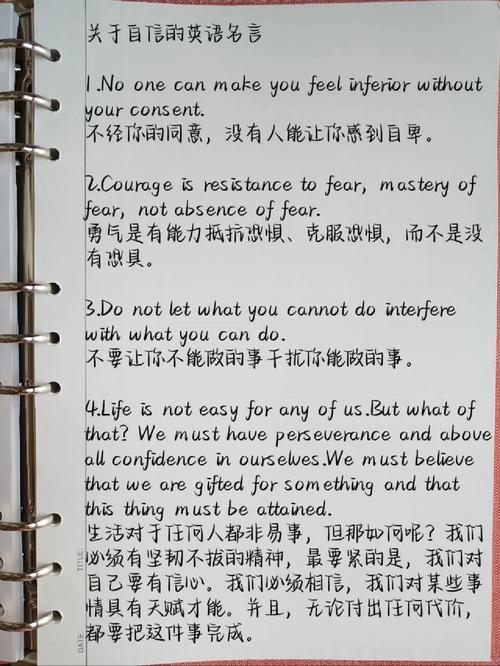 关于自信的英语名言
1.No one can make you feel inferior without
your consent.
不经你的同意，没有人能让你感到自卑。
2.Courage is resistance to fear, mastery of
fear, not absence of fear.
勇气是有能力抵抗恐惧、克服恐惧，而不是没
有恐具。
3.Do not let what you cannot do interfere
with what you can do.
不要让你不能做的事干扰你能做的事。
4.Life is not easy for any of us.But what of
that? We must have perseverance and above
all confidence in ourselves.We must believe
that we are gifted for something and that
this thing must be attained.
生活对于任何人都非易事，但那如何呢？我们
必须有坚韧不拔的精神，最要紧的是，我们对
自己要有信心。我们必须相信，我们对某些事
情具有天赋才能。并且，无论付出任何代价，
都要把这件事完成。
TITLE
DATE